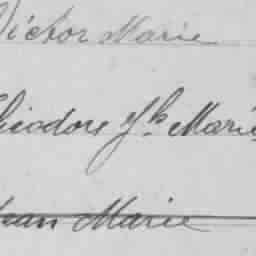 Victor Marie
Théodore Marie
Jean Marie